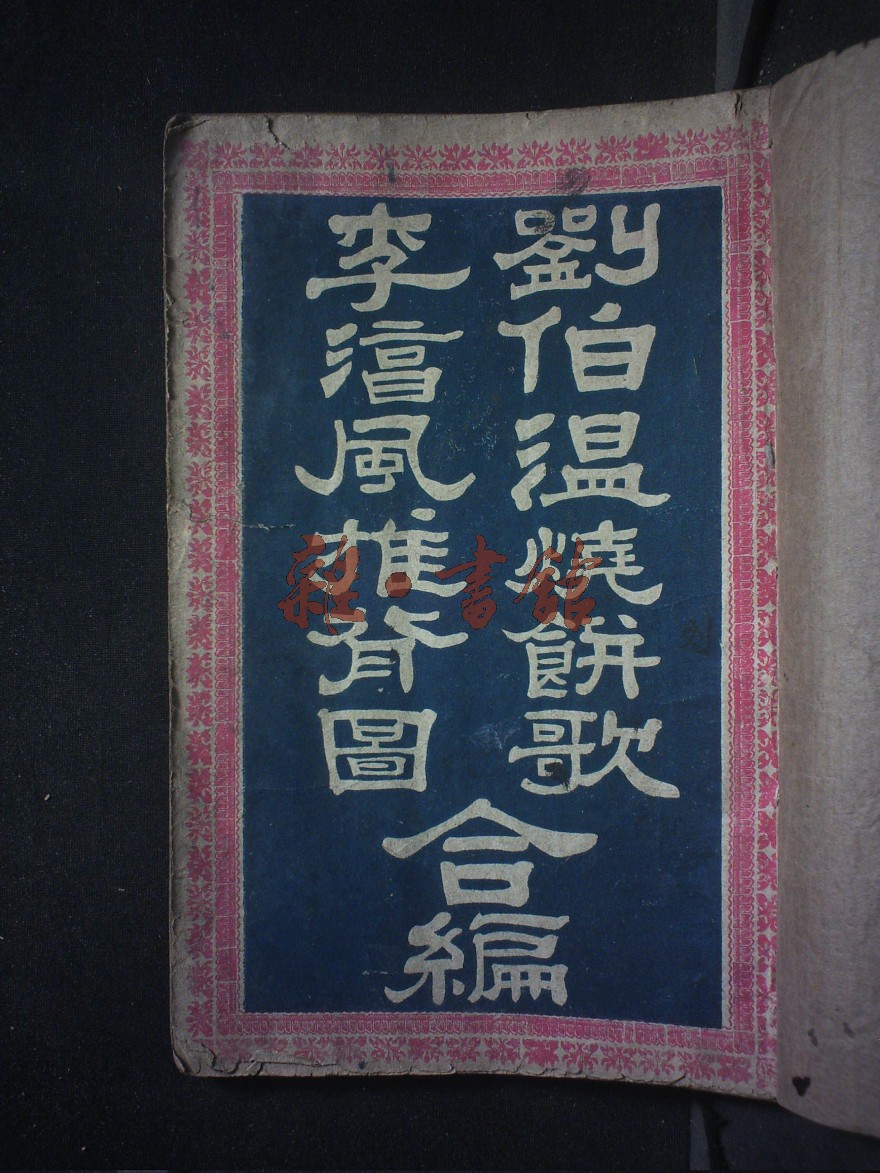 劉伯温燒餅歌
李淳風推背圖
合編
雜·書館